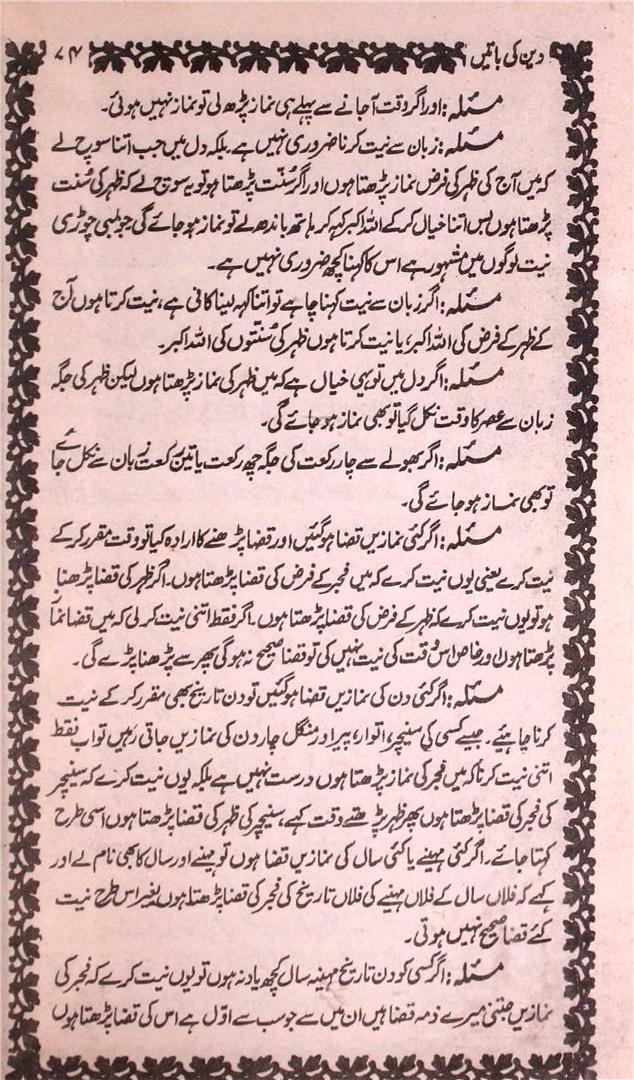 دین کی باتیں ۷۴
مسئلہ: اور اگر وقت آجانے سے پہلے ہی نماز پڑھ لی تو نماز نہیں ہوئی۔
مسئلہ: زبان سے نیت کرنا ضروری نہیں ہے بلکہ دل میں جب اتنا سوچ لے
کہ میں آج کی ظہر کی فرض نماز پڑھتا ہوں اور اگر سُنّت پڑھتا ہو تو یہ سوچ لے کہ ظہر کی سُنت
پڑھتا ہوں بس اتنا خیال کر کے اللہ اکبر کہہ کر ہاتھ باندھ لے تو نماز ہو جائے گی جو لمبی چوڑی
نیت لوگوں میں مشہور ہے اس کا کہنا کچھ ضروری نہیں ہے۔
مسئلہ: اگر زبان سے نیت کہنا چاہے تو اتنا کہہ لینا کافی ہے، نیت کرتا ہوں آج
کے ظہر کے فرض کی اللہ اکبر، یا نیت کرتا ہوں ظہر کی سُنتوں کی اللہ اکبر۔
مسئلہ: اگر دل میں تو یہی خیال ہے کہ میں ظہر کی نماز پڑھتا ہوں لیکن ظہر کی جگہ
زبان سے عصر کا وقت نکل گیا تو بھی نماز ہو جائے گی۔
مسئلہ: اگر بھولے سے چار رکعت کی جگہ چھ رکعت یا تین رکعت زبان سے نکل جائے
تو بھی نماز ہو جائے گی۔
مسئلہ: اگر کئی نمازیں قضا ہوگئیں اور قضا پڑھنے کا ارادہ کیا تو وقت مقرر کر کے
نیت کرے یعنی یوں نیت کرے کہ میں فجر کے فرض کی قضا پڑھتا ہوں۔ اگر ظہر کی قضا پڑھنا
ہو تو یوں نیت کرے کہ ظہر کے فرض کی قضا پڑھتا ہوں۔ اگر فقط اتنی نیت کر لی کہ میں قضا نماز
پڑھتا ہوں اور خاص اس وقت کی نیت نہیں کی تو قضا صحیح نہ ہو گی پھر سے پڑھنا پڑے گی۔
مسئلہ: اگر کئی دن کی نمازیں قضا ہو گئیں تو دن تاریخ بھی مقرر کر کے نیت
کرنا چاہئے۔ جیسے کسی کی سنیچر، اتوار، پیر اور منگل چار دن کی نمازیں جاتی رہیں تو اب فقط
اتنی نیت کرنا کہ میں فجر کی نماز پڑھتا ہوں درست نہیں ہے بلکہ یوں نیت کرے کہ سنیچر
کی فجر کی قضا پڑھتا ہوں پھر ظہر پڑھتے وقت کہے، سنیچر کی ظہر کی قضا پڑھتا ہوں اسی طرح
کہتا جائے۔ اگر کئی مہینے یا کئی سال کی نمازیں قضا ہوں تو مہینے اور سال کا بھی نام لے اور
کہے کہ فلاں سال کے فلاں مہینے کی فلاں تاریخ کی فجر کی قضا پڑھتا ہوں بغیر اس طرح نیت
کئے قضا صحیح نہیں ہوتی۔
مسئلہ: اگر کسی کو دن تاریخ مہینہ سال کچھ یاد نہ ہوں تو یوں نیت کرے کہ فجر کی
نمازیں جتنی میرے ذمہ قضا ہیں ان میں سے جو سب سے اوّل ہے اس کی قضا پڑھتا ہوں